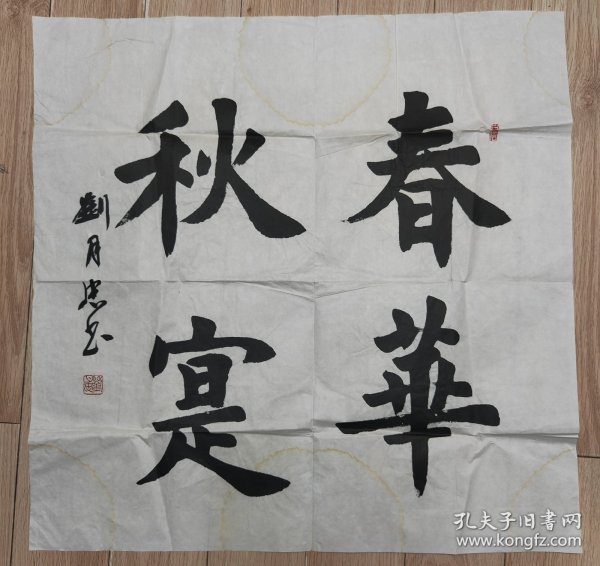 春華
秋寔
劉月忠书
孔夫子旧書网
www.kongfz.com